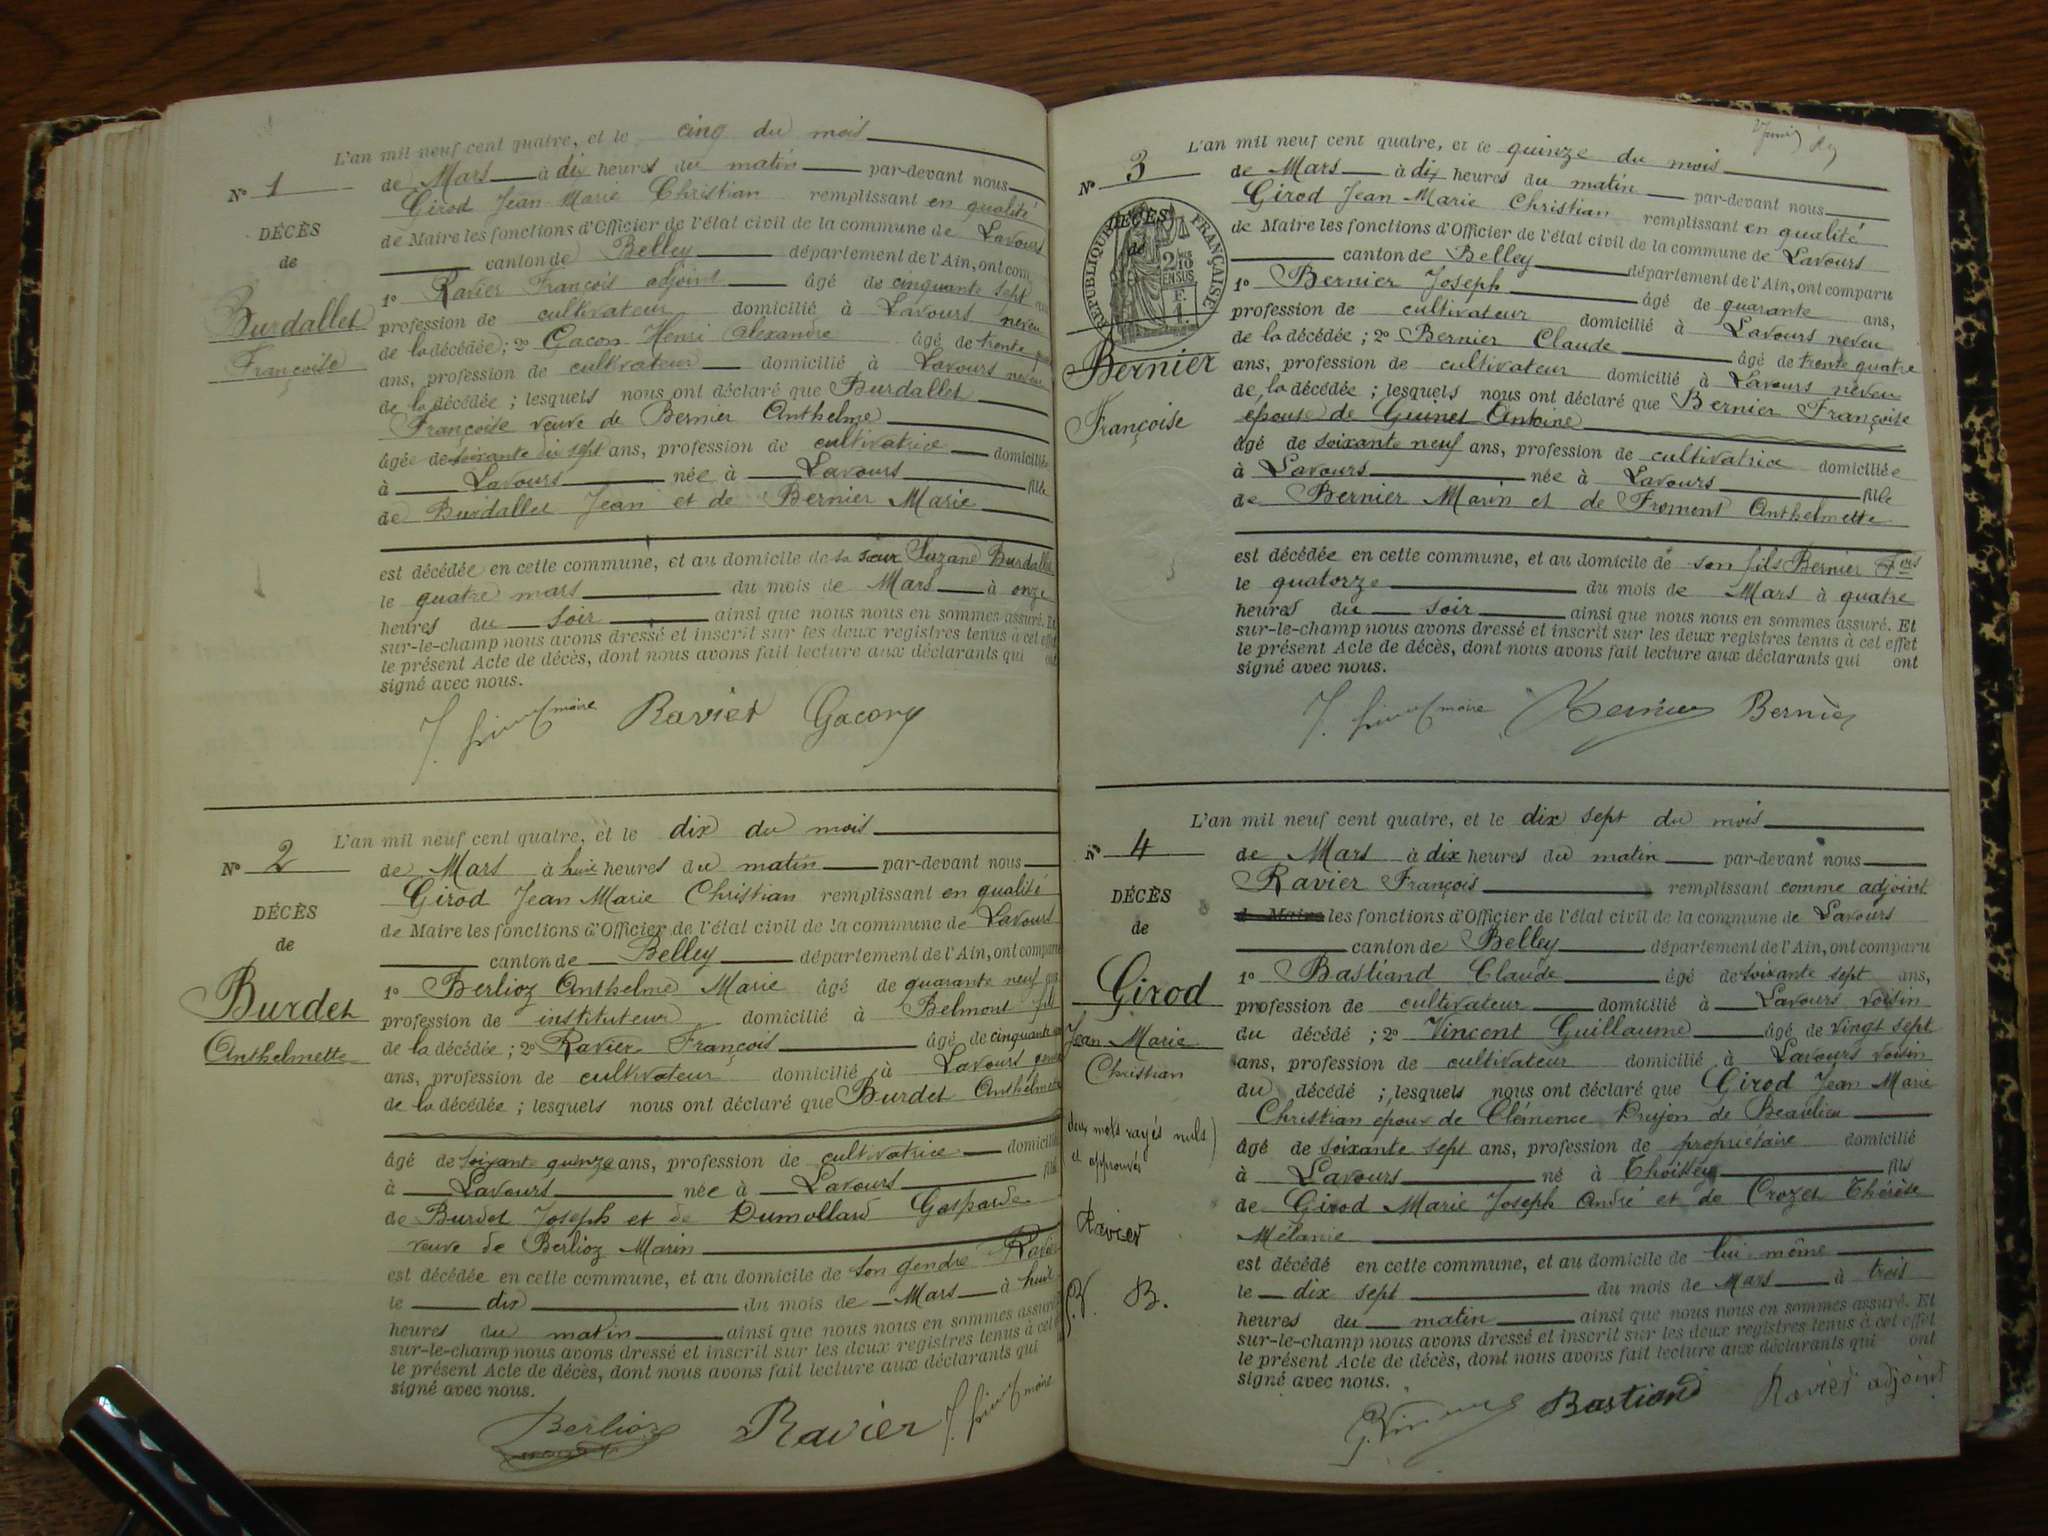 L'an mil neuf cent quatre, et le cinq du mois
Nº 1
de Mars à dix heures du matin par-devant nous
Girod Jean Marie Christian remplissant en qualité
DÉCÈS
de Maire les fonctions d'Officier de l'état civil de la commune de Lavours
de
canton de Belley département de l'Ain, ont com
1º Ravier François adjoint âgé de cinquante sept
Burdallet
profession de cultivateur domicilié à Lavours neveu
de la décédée; 2º Gacon Henri Alexandre âgé de trente
Françoise
ans, profession de cultivateur domicilié à Lavours neveu
de la décédée; lesquels nous ont déclaré que Burdallet
Françoise veuve de Bernier Anthelme
âgée de soixante dix sept ans, profession de cultivatrice domiciliée
à Lavours née à Lavours fille
de Burdallet Jean et de Bernier Marie
est décédée en cette commune, et au domicile de sa sœur Suzane Burdallet
le quatre mars du mois de Mars à onze
heures du soir ainsi que nous nous en sommes assuré. Et
sur-le-champ nous avons dressé et inscrit sur les deux registres tenus à cet effet
le présent Acte de décès, dont nous avons fait lecture aux déclarants qui ont
signé avec nous.
maire Ravier Gacon
L'an mil neuf cent quatre, et le dix du mois
Nº 2
de Mars à huit heures du matin par-devant nous
Girod Jean Marie Christian remplissant en qualité
DÉCÈS
de Maire les fonctions d'Officier de l'état civil de la commune de Lavours
de
canton de Belley département de l'Ain, ont comparu
1º Berlioz Anthelme Marie âgé de quarante neuf ans
Burdet
profession de instituteur domicilié à Belmont fils
de la décédée; 2º Ravier François âgé de cinquante
Anthelmette
ans, profession de cultivateur domicilié à Lavours
de la décédée; lesquels nous ont déclaré que Burdet Anthelmette
âgé de soixante quinze ans, profession de cultivatrice domiciliée
à Lavours née à Lavours fille
de Burdet Joseph et de Dumollard Gasparde
veuve de Berlioz Marin
est décédée en cette commune, et au domicile de son gendre Ravier
le dix du mois de Mars à huit
heures du matin ainsi que nous nous en sommes assuré
sur-le-champ nous avons dressé et inscrit sur les deux registres tenus à cet
le présent Acte de décès, dont nous avons fait lecture aux déclarants qui
signé avec nous.
Berlioz Ravier maire
L'an mil neuf cent quatre, et le quinze du mois
Nº 3
de Mars à dix heures du matin par-devant nous
Girod Jean Marie Christian remplissant en qualité
DÉCÈS
de Maire les fonctions d'Officier de l'état civil de la commune de Lavours
de
RÉPUBLIQUE FRANÇAISE
canton de Belley département de l'Ain, ont comparu
1º Bernier Joseph âgé de quarante ans,
profession de cultivateur domicilié à Lavours neveu
de la décédée; 2º Bernier Claude âgé de trente quatre
Bernier
ans, profession de cultivateur domicilié à Lavours neveu
de la décédée; lesquels nous ont déclaré que Bernier Françoise
Françoise
épouse de Guinet Antoine
âgé de soixante neuf ans, profession de cultivatrice domiciliée
à Lavours née à Lavours fille
de Bernier Marin et de Froment Anthelmette
est décédée en cette commune, et au domicile de son fils Bernier Fçois
le quatorze du mois de Mars à quatre
heures du soir ainsi que nous nous en sommes assuré. Et
sur-le-champ nous avons dressé et inscrit sur les deux registres tenus à cet effet
le présent Acte de décès, dont nous avons fait lecture aux déclarants qui ont
signé avec nous.
maire Bernier Bernier
L'an mil neuf cent quatre, et le dix sept du mois
Nº 4
de Mars à dix heures du matin par-devant nous
Ravier François remplissant comme adjoint
DÉCÈS
de Maire les fonctions d'Officier de l'état civil de la commune de Lavours
de
canton de Belley département de l'Ain, ont comparu
1º Bastiand Claude âgé de soixante sept ans,
Girod
profession de cultivateur domicilié à Lavours voisin
du décédé; 2º Vincent Guillaume âgé de vingt sept
Jean Marie
ans, profession de cultivateur domicilié à Lavours voisin
Christian
du décédé; lesquels nous ont déclaré que Girod Jean Marie
Christian époux de Clémence Prujon de Beaulieu
deux mots rayés nuls
et approuvés
âgé de soixante sept ans, profession de propriétaire domicilié
à Lavours né à Thoissey fils
de Girod Marie Joseph André et de Crozet Thérèse
Ravier
Mélanie
est décédé en cette commune, et au domicile de lui-même
le dix sept du mois de Mars à trois
V. B.
heures du matin ainsi que nous nous en sommes assuré. Et
sur-le-champ nous avons dressé et inscrit sur les deux registres tenus à cet effet
le présent Acte de décès, dont nous avons fait lecture aux déclarants qui ont
signé avec nous.
G. Vincent Bastiand Ravier adjoint